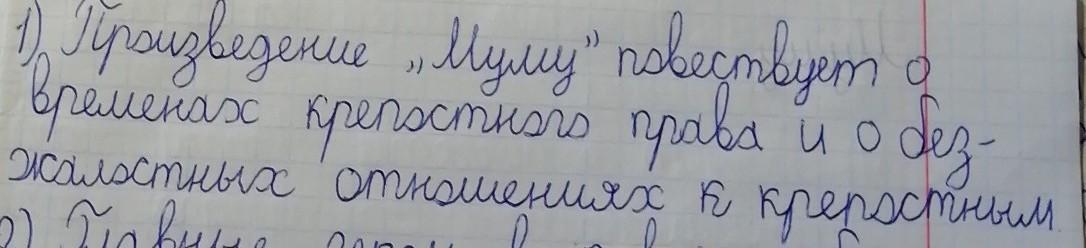 1) Произведение „Муму” повествует о
временах крепостного права и о без-
жалостных отношениях к крепостным
2) Главные герои